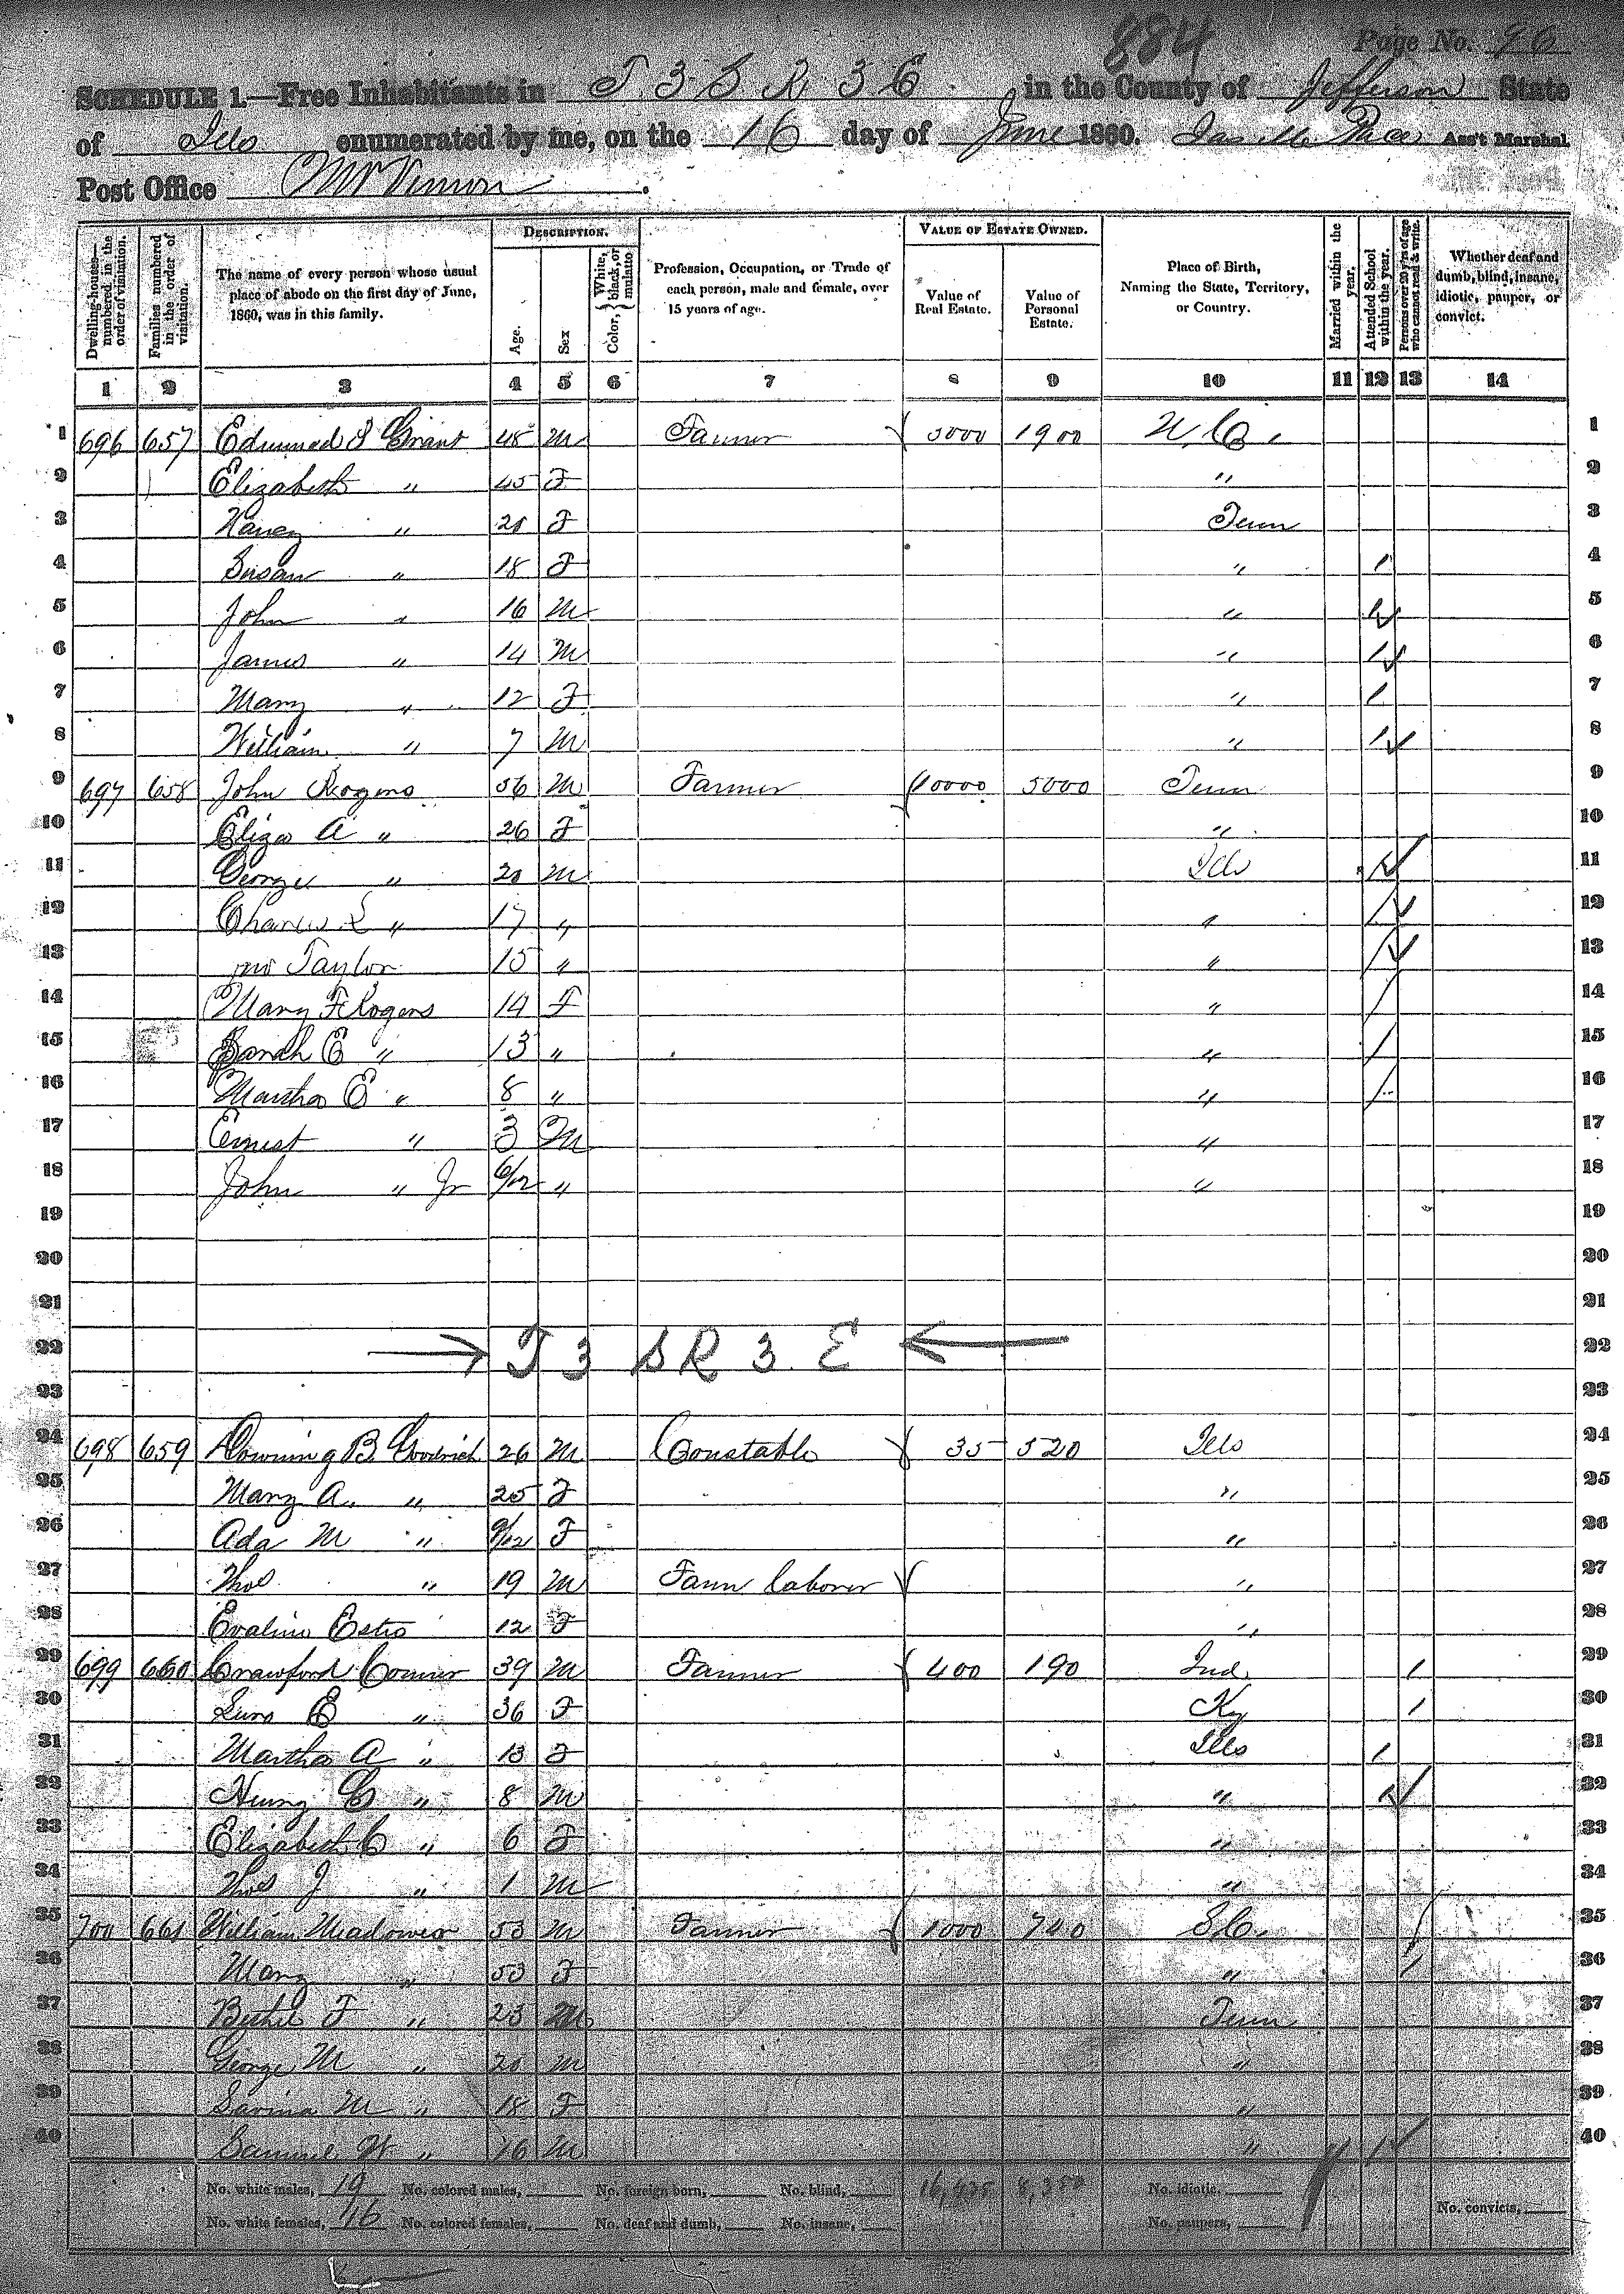 884 Page No. 96
SCHEDULE 1.—Free Inhabitants in T 3 S R 3 E in the County of Jefferson State
of Ills enumerated by me, on the 16 day of June 1860. Ass't Marshal
Post Office Mt Vernon.
Dwelling-houses—numbered in the order of visitation.
Families numbered in the order of visitation.
The name of every person whose usual place of abode on the first day of June, 1860, was in this family.
DESCRIPTION.
Age.
Sex
Color, { White, black, or mulatto.
Profession, Occupation, or Trade of each person, male and female, over 15 years of age.
VALUE OF ESTATE OWNED.
Value of Real Estate.
Value of Personal Estate.
Place of Birth, Naming the State, Territory, or Country.
Married within the year.
Attended School within the year.
Persons over 20 y'rs of age who cannot read & write.
Whether deaf and dumb, blind, insane, idiotic, pauper, or convict.
1 2 3 4 5 6 7 8 9 10 11 12 13 14
1 696 657 Edmund Grant 48 M Farmer 3000 1900 N.C. 1
2 Elizabeth " 45 F " 2
3 Nancy " 20 F Tenn 3
4 Susan " 18 F " / 4
5 John " 16 M " / 5
6 James " 14 M " / 6
7 Mary " 12 F " / 7
8 William " 7 M " / 8
9 697 658 John Rogers 56 M Farmer 10000 5000 Tenn 9
10 Eliza A " 26 F " 10
11 George " 20 M Ills / 11
12 Charles L " 17 " " / 12
13 Taylor 15 " " / 13
14 Mary F Rogers 14 F " / 14
15 Sarah E " 13 " " / 15
16 Martha E " 8 " " / 16
17 Ernest " 3 M " 17
18 John " Jr 6/12 " " 18
19 19
20 20
21 21
22 → T 3 S R 3 E ← 22
23 23
24 698 659 Downing B. Goodrich 26 M Constable 35 520 Ills 24
25 Mary A. " 25 F " 25
26 Ada M " 9/12 F " 26
27 Thos " 19 M Farm laborer " 27
28 Evaline Estis 12 F " 28
29 699 660 Crawford Conner 39 M Farmer 400 190 Ind. / 29
30 E " 36 F Ky / 30
31 Martha A " 13 F Ills / 31
32 Henry C " 8 M " / 32
33 Elizabeth C " 6 F " 33
34 Thos J " 1 M " 34
35 700 661 William Meadows 53 M Farmer 1000 740 S.C. / 35
36 Mary " 53 F " / 36
37 Bethel F " 23 M Tenn 37
38 George M " 20 M " 38
39 Savina M " 18 F " 39
40 Samuel W " 16 M " / 40
No. white males, 19 No. colored males, No. foreign born, No. blind, 16,435 8,350 No. idiotic,
No. white females, 16 No. colored females, No. deaf and dumb, No. insane, No. paupers, No. convicts,